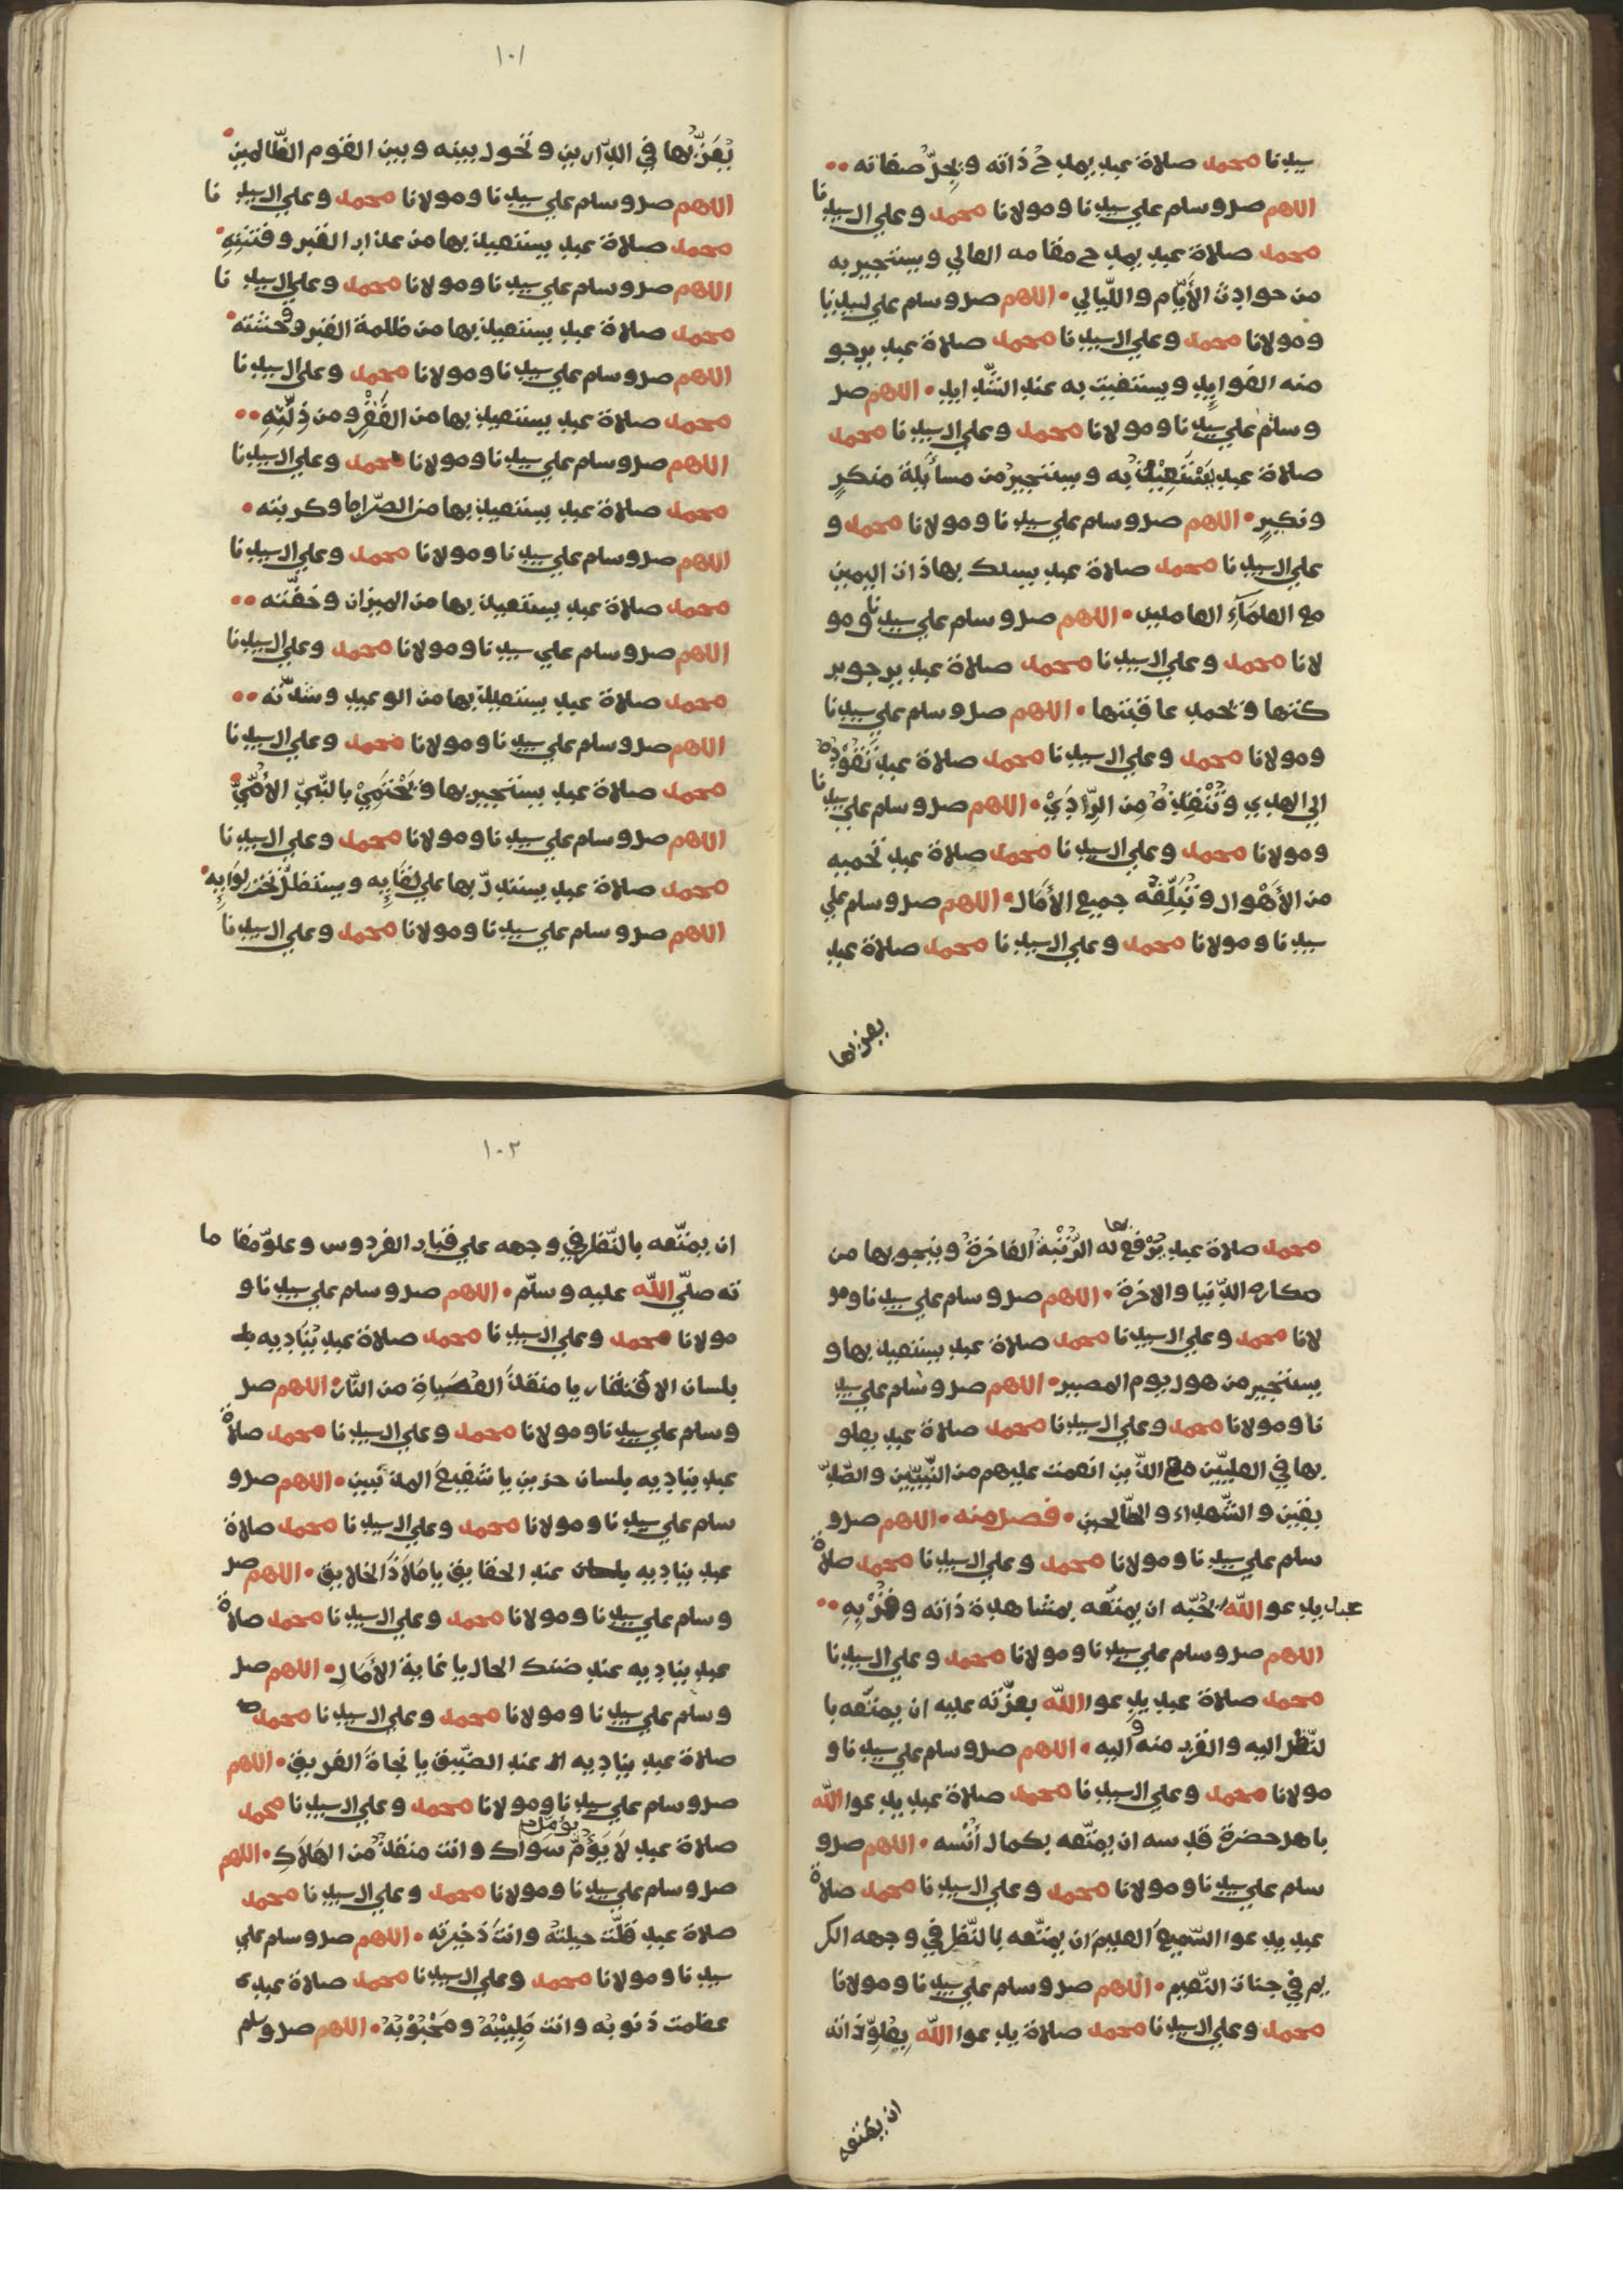 سيدنا محمد صلاة عبد يمدح ذاته ويجلّ صفاته
اللهم صل وسلم علي سيدنا ومولانا محمد وعلي ال سيدنا
محمد صلاة عبد يمدح مقامه العالي ويستجير به
من حوادث الأيّام والليّالي اللهم صل وسلم علي سيدنا
ومولانا محمد وعلي ال سيدنا محمد صلاة عبد يرجو
منه الفوايد ويستغيث به عند الشّدايد اللهم صل
وسلم علي سيدنا ومولانا محمد وعلي ال سيدنا محمد
صلاة عبد يستغيث به ويستجير من مسائلة منكرٍ
ونكيرٍ اللهم صل وسلم علي سيدنا ومولانا محمد و
علي ال سيدنا محمد صلاة عبد يسلك بها ذات اليمين
مع العلمآء العاملين اللهم صل وسلم علي سيدنا ومو
لانا محمد وعلي ال سيدنا محمد صلاة عبد يرجو بر
كتها وتحمد عاقبتها اللهم صل وسلم علي سيدنا
ومولانا محمد وعلي ال سيدنا محمد صلاة عبد تقوده
الي الهدي وتنقذه من الرّدي اللهم صل وسلم علي سيدنا
ومولانا محمد وعلي ال سيدنا محمد صلاة عبد تحميه
من الأهوال وتبلّغه جميع الأمال اللهم صل وسلم علي
سيدنا ومولانا محمد وعلي ال سيدنا محمد صلاة عبد
يعز بها
١٠١
يعزّ بها في الدّارين وتحول بينه وبين القوم الظّالمين
اللهم صل وسلم علي سيدنا ومولانا محمد وعلي ال سيدنا
محمد صلاة عبد يستعيذ بها من عذاب القبر وفتنته
اللهم صل وسلم علي سيدنا ومولانا محمد وعلي ال سيدنا
محمد صلاة عبد يستعيذ بها من ظلمة القبر ووحشته
اللهم صل وسلم علي سيدنا ومولانا محمد وعلي ال سيدنا
محمد صلاة عبد يستعيذ بها من الفقر ومن ذلّته
اللهم صل وسلم علي سيدنا ومولانا محمد وعلي ال سيدنا
محمد صلاة عبد يستعيذ بها من الصّراط وكربته
اللهم صل وسلم علي سيدنا ومولانا محمد وعلي ال سيدنا
محمد صلاة عبد يستعيذ بها من الميزان وخفّته
اللهم صل وسلم علي سيدنا ومولانا محمد وعلي ال سيدنا
محمد صلاة عبد يستعيذ بها من الوعيد وشدّته
اللهم صل وسلم علي سيدنا ومولانا محمد وعلي ال سيدنا
محمد صلاة عبد يستجير بها ويحتمي بالنّبيّ الأمّيّ
اللهم صل وسلم علي سيدنا ومولانا محمد وعلي ال سيدنا
محمد صلاة عبد يستدلّ بها علي لقايه ويستظلّ تحت لوايه
اللهم صل وسلم علي سيدنا ومولانا محمد وعلي ال سيدنا
محمد صلاة عبد يرفع بها له الرّتبة الفاخرة وينجو بها من
مكاره الدّنيا والاخرة اللهم صل وسلم علي سيدنا ومو
لانا محمد وعلي ال سيدنا محمد صلاة عبد يستعيذ بها و
يستجير من هول يوم المصير اللهم صل وسلم علي سيد
نا ومولانا محمد وعلي ال سيدنا محمد صلاة عبد يعلو
بها في العليّين مع الذّين انعمت عليهم من النّبيّين والصّدّ
يقين والشّهداء والصّالحين فصل منه اللهم صل و
سلم علي سيدنا ومولانا محمد وعلي ال سيدنا محمد صلاة
عبد يدعوا اللّه لحبّه ان يمتّعه بمشاهدة ذاته وقربه
اللهم صل وسلم علي سيدنا ومولانا محمد وعلي ال سيدنا
محمد صلاة عبد يدعوا اللّه بعزّته عليه ان يمتّعه با
لنّظر اليه والقرب منه واليه اللهم صل وسلم علي سيدنا و
مولانا محمد وعلي ال سيدنا محمد صلاة عبد يدعوا اللّه
باهل حضرة قدسه ان يمتّعه بكمال أنسه اللهم صل و
سلم علي سيدنا ومولانا محمد وعلي ال سيدنا محمد صلاة
عبد يدعوا السّميع العليم ان يمتّعه بالنّظر في وجهه الكر
يم في جنات النّعيم اللهم صل وسلم علي سيدنا ومولانا
محمد وعلي ال سيدنا محمد صلاة يدعوا اللّه بعلوّ ذاته
ان يمتعه
١٠٢
ان يمتّعه بالنّظر في وجهه علي قباب الفردوس وعلوّ مقاما
ته صلّي اللّه عليه وسلّم اللهم صل وسلم علي سيدنا و
مولانا محمد وعلي ال سيدنا محمد صلاة عبد يناديه بلـ
بلسان الافتقار يا منقذ العصاة من النّار اللهم صل
وسلم علي سيدنا ومولانا محمد وعلي ال سيدنا محمد صلاة
عبد يناديه بلسان حزين يا شفيع المذنبين اللهم صل و
سلم علي سيدنا ومولانا محمد وعلي ال سيدنا محمد صلاة
عبد يناديه بلسان عند الحقايق يا ملاذ الخلايق اللهم صل
وسلم علي سيدنا ومولانا محمد وعلي ال سيدنا محمد صلاة
عبد يناديه عند ضنك الحال يا غاية الأمال اللهم صل
وسلم علي سيدنا ومولانا محمد وعلي ال سيدنا محمد
صلاة عبد يناديه عند الضّيق يا نجاة الغريق اللهم
صل وسلم علي سيدنا ومولانا محمد وعلي ال سيدنا محمد
صلاة عبد لا يؤمّل سواك وانت منقذ من الهلاك اللهم
صل وسلم علي سيدنا ومولانا محمد وعلي ال سيدنا محمد
صلاة عبد قلّت حيلته وانت ذخيرته اللهم صل وسلم علي
سيدنا ومولانا محمد وعلي ال سيدنا محمد صلاة عبد
عظمت ذنوبه وانت طبيبه ومحبوبه اللهم صل وسلم